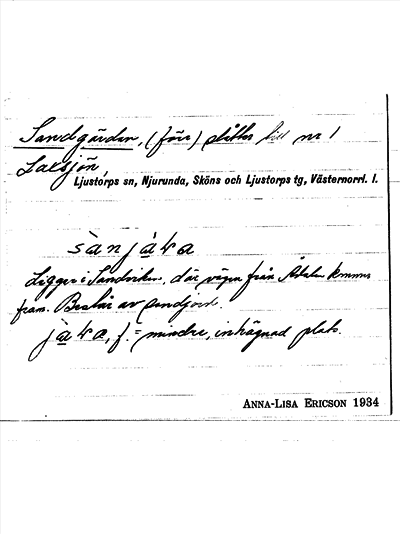 Sandgärdan, (förr) slåtter till nr 1
Laxsjön,
Ljustorps sn, Njurunda, Sköns och Ljustorps tg, Västernorrl. l.
Ligger i Sandviken, där vägen från Åsäln kommer
fram. Består av sandjord.
f. = mindre, inhägnad plats.
ANNA-LISA ERICSON 1934